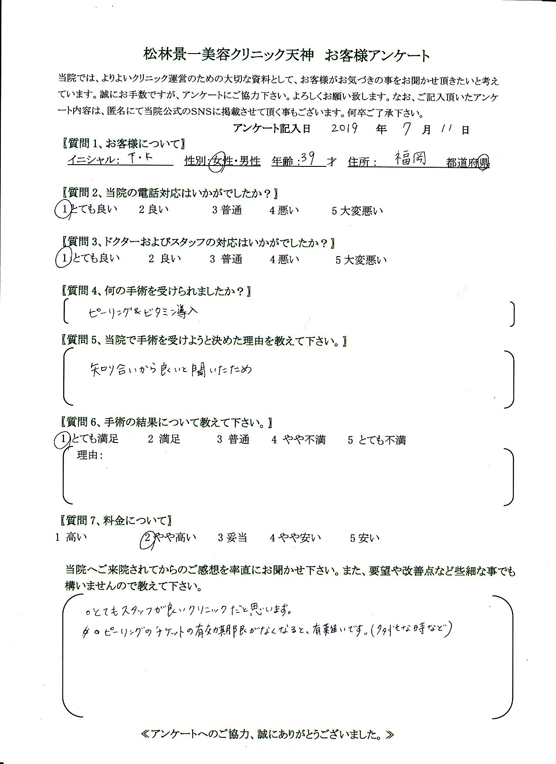 松林景一美容クリニック天神 お客様アンケート
当院では、よりよいクリニック運営のための大切な資料として、お客様がお気づきの事をお聞かせ頂きたいと考え
ています。誠にお手数ですが、アンケートにご協力下さい。よろしくお願い致します。なお、ご記入頂いたアンケ
ート内容は、匿名にて当院公式のSNSに掲載させて頂く事もございます。何卒ご了承下さい。
アンケート記入日 2019 年 7 月 11 日
〖質問1、お客様について〗
イニシャル: T・K 性別:女性・男性 年齢:39 才 住所: 福岡 都道府県
〖質問2、当院の電話対応はいかがでしたか?〗
1とても良い 2 良い 3 普通 4 悪い 5 大変悪い
〖質問3、ドクターおよびスタッフの対応はいかがでしたか?〗
1とても良い 2 良い 3 普通 4 悪い 5 大変悪い
〖質問4、何の手術を受けられましたか?〗
ピーリング&ビタミン導入
〖質問5、当院で手術を受けようと決めた理由を教えて下さい。〗
知り合いから良いと聞いたため
〖質問6、手術の結果について教えて下さい。〗
1とても満足 2 満足 3 普通 4 やや不満 5 とても不満
理由:
〖質問7、料金について〗
1 高い 2やや高い 3 妥当 4 やや安い 5 安い
当院へご来院されてからのご感想を率直にお聞かせ下さい。また、要望や改善点など些細な事でも
構いませんので教えて下さい。
○とてもスタッフが良いクリニックだと思います。
○ピーリングのチケットの有効期限がなくなると、有難いです。(多忙な時など)
≪アンケートへのご協力、誠にありがとうございました。≫